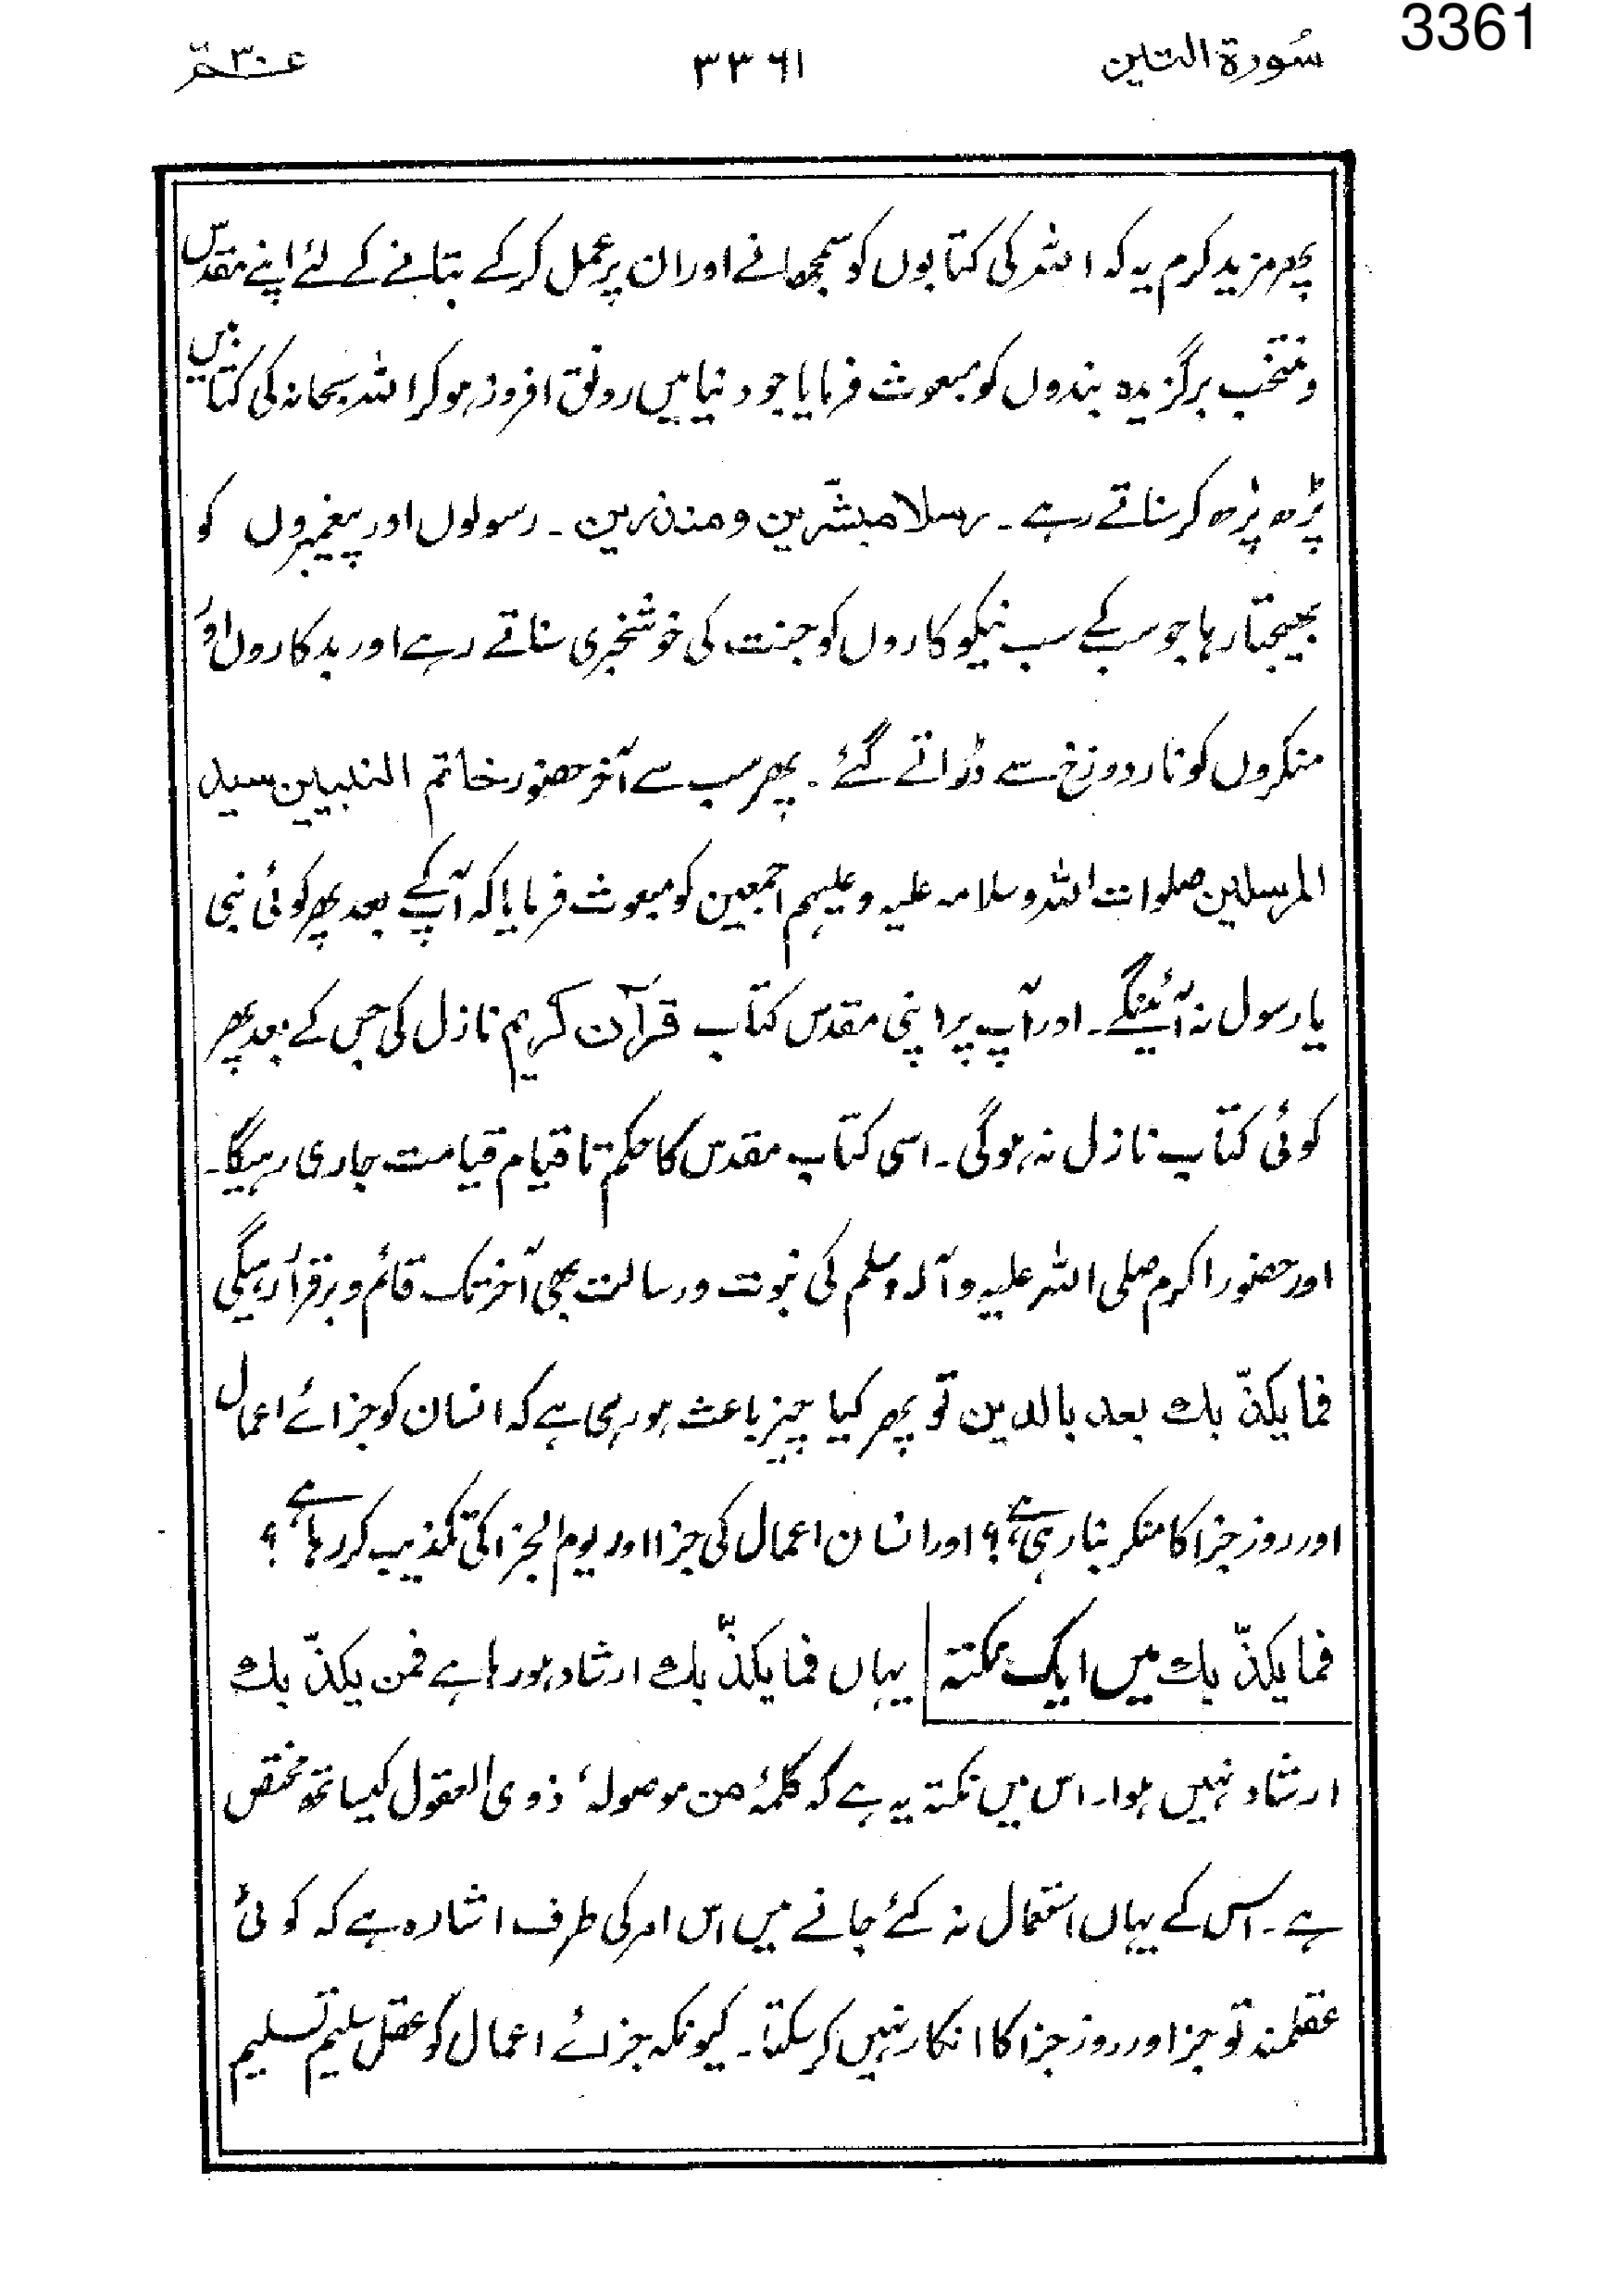 3361
سُورة التين ۳۳۶۱ عـمّ۳۰
پھر مزید کرم یہ کہ اللہ کی کتابوں کو سمجھانے اور ان پر عمل کر کے بتانے کے لئے اپنے مقدس
و منتخب برگزیدہ بندوں کو مبعوث فرمایا جو دنیا میں رونق افروز ہو کر اللہ سبحانہ کی کتابیں
پڑھ پڑھ کر سناتے رہے ۔ رسلا مبشّرین و منذرین ۔ رسولوں اور پیغمبروں کو
بھیجتا رہا جو سب کے سب نیکو کاروں کو جنت کی خوشخبری سناتے رہے اور بدکاروں اور
منکروں کو نار دوزخ سے ڈراتے گئے ۔ پھر سب سے آخر حضور خاتم النبیین سید
المرسلین صلوات اللہ وسلامہ علیہ وعلیہم اجمعین کو مبعوث فرمایا کہ آپ کے بعد پھر کوئی نبی
یا رسول نہ آئینگے ۔ اور آپ پر اپنی مقدس کتاب قرآن کریم نازل کی جس کے بعد پھر
کوئی کتاب نازل نہ ہوگی ۔ اسی کتاب مقدس کا حکم تا قیام قیامت جاری رہیگا ۔
اور حضور اکرم صلی اللہ علیہ وآلہ وسلم کی نبوت و رسالت بھی آخر تک قائم و برقرار رہیگی
فما یکذّبك بعد بالدین تو پھر کیا چیز باعث ہو رہی ہے کہ انسان کو جزائے اعمال
اور روز جزا کا منکر بنا رہی ہے ؟ اور انسان اعمال کی جزا اور یوم الجزا کی تکذیب کر رہا ہے ؟
فما یکذّبك میں ایک نکتہ یہاں فما یکذّبك ارشاد ہو رہا ہے فمن یکذّبك
ارشاد نہیں ہوا ۔ اس میں نکتہ یہ ہے کہ کلمۂ من موصولہ ، ذوی العقول کیساتھ مختص
ہے ۔ اس کے یہاں استعمال نہ کئے جانے میں اس امر کی طرف اشارہ ہے کہ کوئی
عقلمند تو جزا اور روز جزا کا انکار نہیں کر سکتا ۔ کیونکہ جزائے اعمال کو عقل سلیم تسلیم